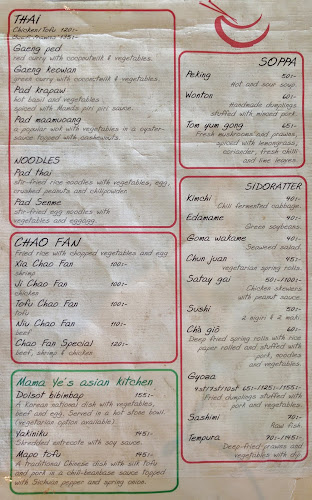 THAI
Chicken/Tofu 120:-
Gaeng ped
red curry with coconutmilk & vegetables.
Gaeng keowan
green curry with coconutmilk & vegetables.
Pad krapaw
hot basil and vegetables
spiced with Mandz piri piri sauce.
Pad maamuang
a popular wok with vegetables in a oyster-
sauce topped with cashewnuts.
NOODLES
Pad thai
stir-fried rice noodles with vegetables, egg,
crushed peanuts and chilipowder.
Pad Senme
stir-fried egg noodles with
vegetables and eggs
CHAO FAN
Fried rice with chopped vegetables and egg
Xia Chao Fan 100:-
shrimp
Ji Chao Fan 100:-
chicken
Tofu Chao Fan 100:-
tofu
Niu Chao Fan 110:-
beef
Chao Fan Special 120:-
beef, shrimp & chicken
Mama Ye's asian kitchen
Dolsot bibimbap 155:-
A korean national dish with vegetables,
beef and egg. Served in a hot stone bowl.
(vegetarian option available)
Yakiniku 145:-
Shredded entrecote with soy sauce.
Mapo tofu 145:-
A traditional Chinese dish with silk tofu
and pork in a chili-beanbase sauce topped
with Sichuan pepper and spring onion.
SOPPA
Peking 50:-
Hot and sour soup.
Wonton 60:-
Handmade dumplings
stuffed with minced pork.
Tom yum gong 65:-
Fresh mushrooms and prawns,
spiced with lemongrass,
coriander, fresh chilli
and lime leaves.
SIDORATTER
Kimchi 40:-
Chili fermented cabbage.
Edamame 40:-
Green soybeans.
Goma wakame 40:-
Seaweed salad.
Chun juan 45:-
vegetarian spring rolls.
Satay gai 50:-/100:-
Chicken skewers
with peanut sauce.
Sushi 50:-
2 nigiri & 2 maki
Chả giò 60:-
Deep fried spring rolls with rice
paper rolled and stuffed with
pork, noodles
and vegetables.
Gyoza
4st/7st/10st 65:-/125:-/155:-
Fried dumplings stuffed with
pork and vegetables.
Sashimi 70:-
Raw fish.
Tempura 70:-/145:-
Deep-fried prawns and
vegetables with dip